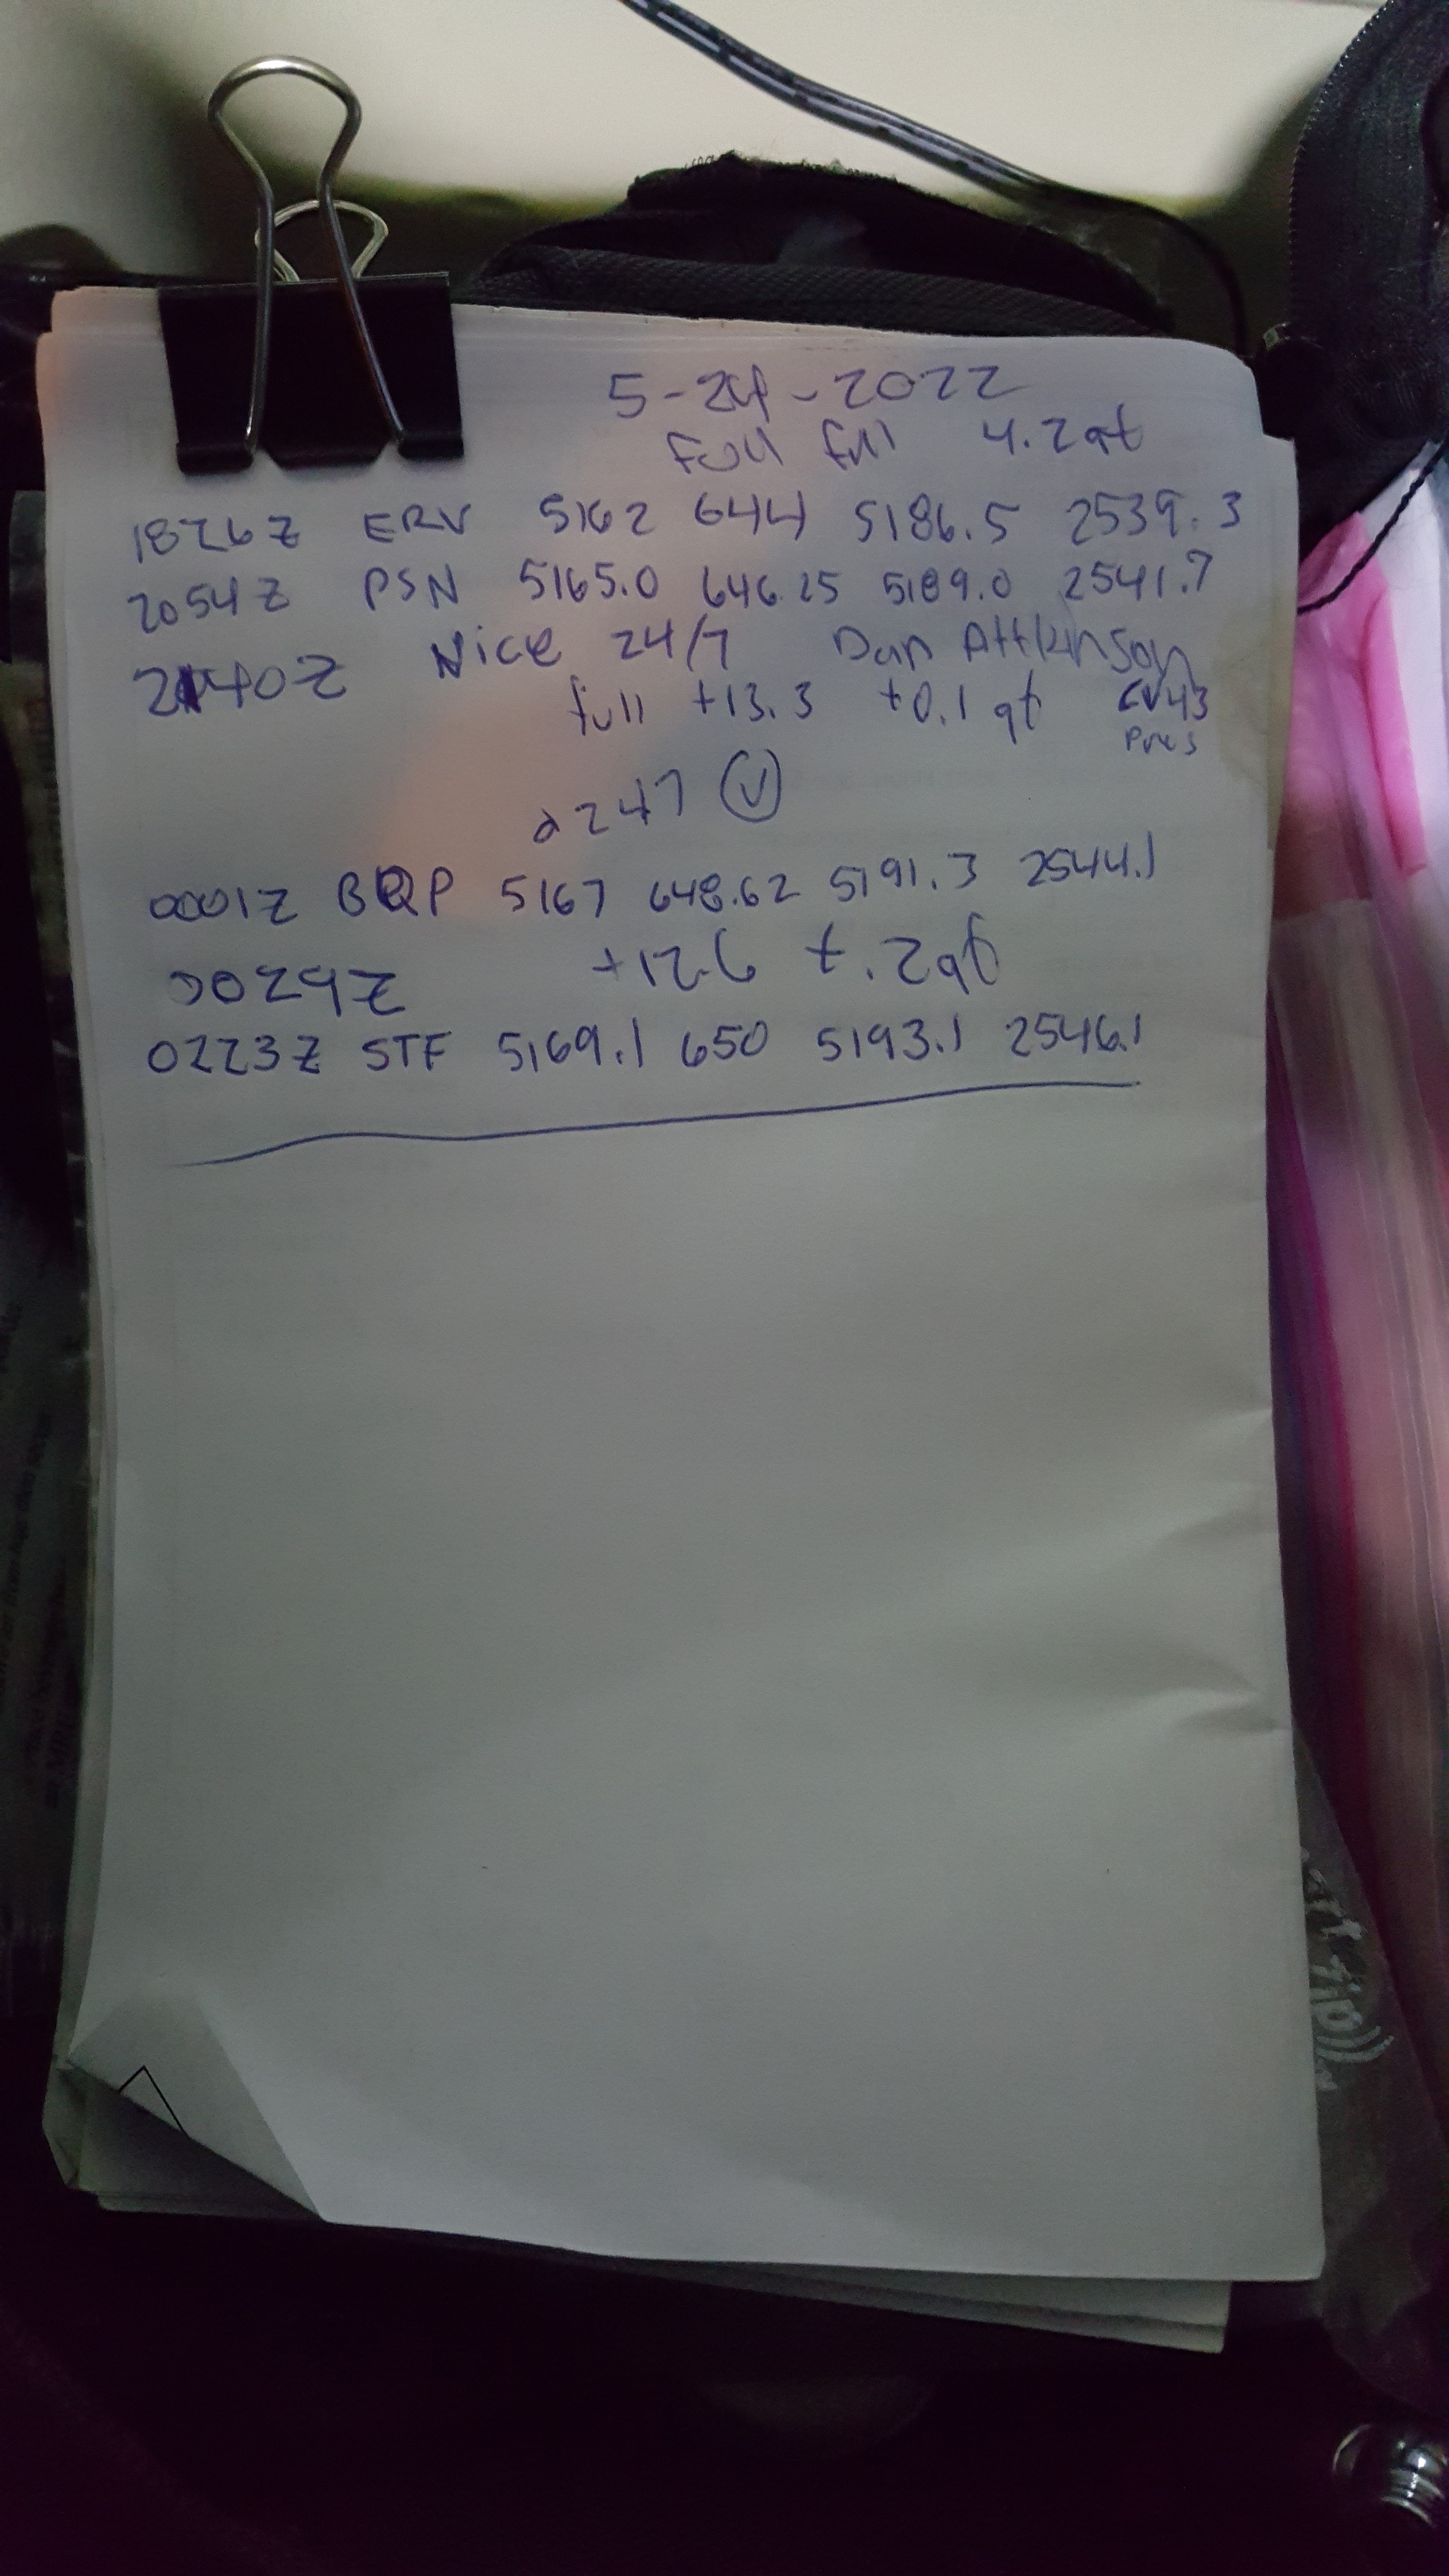 5-24-2022
full full 4.2 qt
1826Z ERV 5162 644 5186.5 2539.3
2054Z PSN 5165.0 646.25 5189.0 2541.7
Nice 24/7 Dan Attkinson
2140Z full +13.3 +0.1 qt CV43
Pres
2247 V
0001Z BQP 5167 648.62 5191.3 2544.1
0029Z +12.6 +.2qt
0223Z STF 5169.1 650 5193.1 2546.1